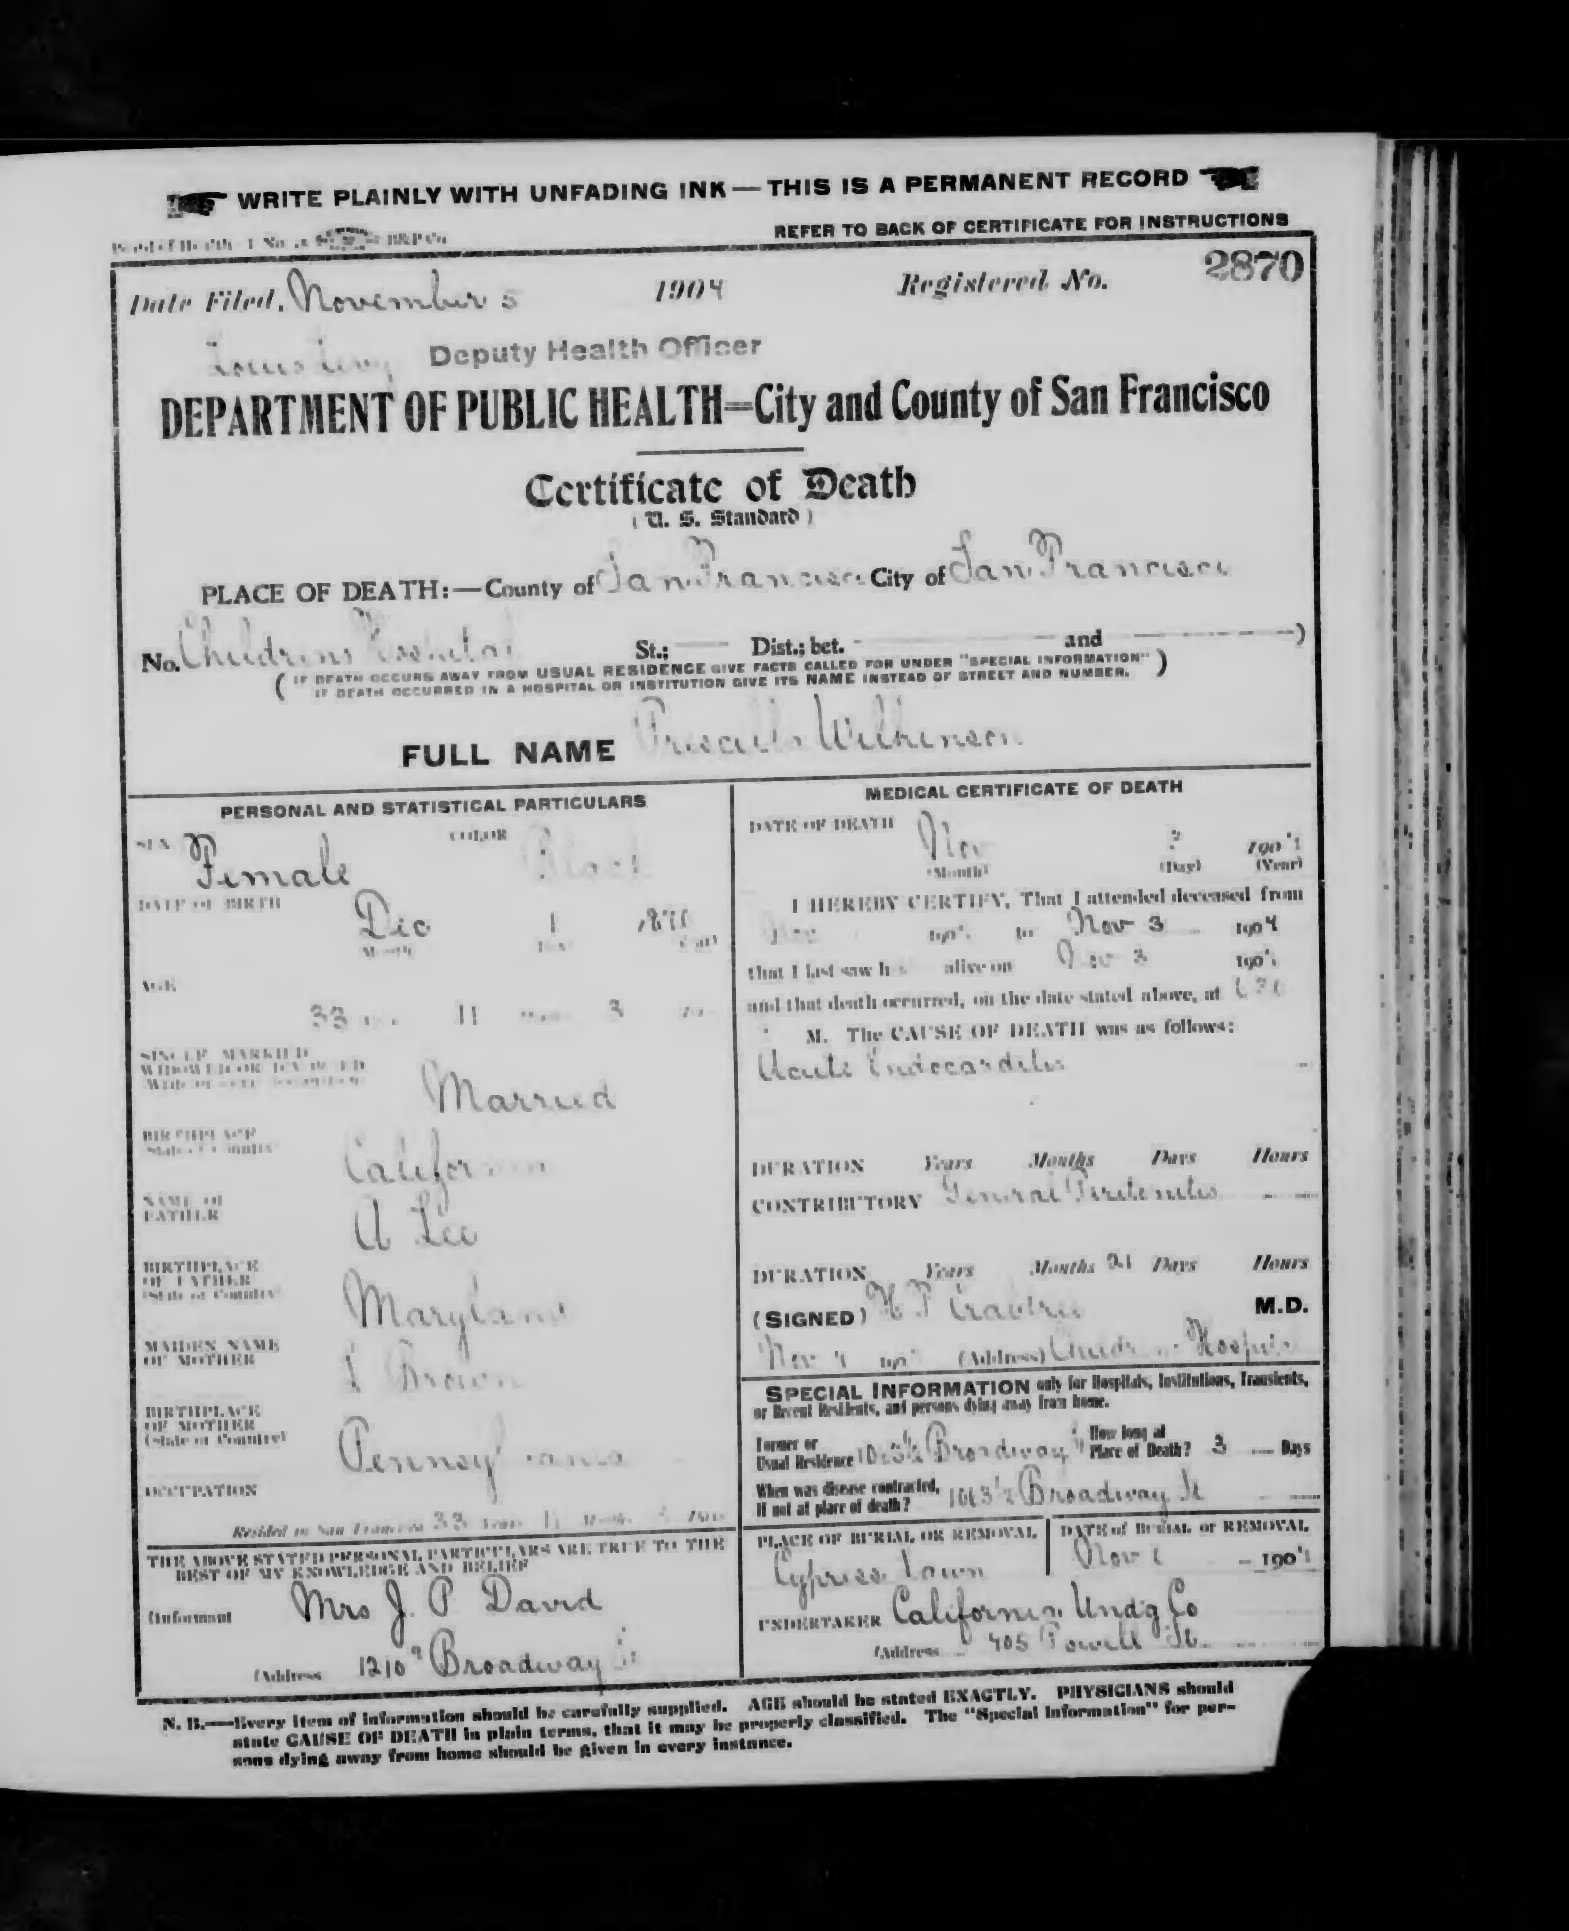 WRITE PLAINLY WITH UNFADING INK — THIS IS A PERMANENT RECORD
REFER TO BACK OF CERTIFICATE FOR INSTRUCTIONS
Date Filed, November 5 1904 Registered No. 2870
Louis Levy Deputy Health Officer
DEPARTMENT OF PUBLIC HEALTH=City and County of San Francisco
Certificate of Death
( U. S. Standard )
PLACE OF DEATH:—County of San Francisco City of San Francisco
No. Childrens Hospital St.; Dist.; bet. and )
( IF DEATH OCCURS AWAY FROM USUAL RESIDENCE GIVE FACTS CALLED FOR UNDER "SPECIAL INFORMATION" )
IF DEATH OCCURRED IN A HOSPITAL OR INSTITUTION GIVE ITS NAME INSTEAD OF STREET AND NUMBER.
FULL NAME Priscilla Wilkinson
PERSONAL AND STATISTICAL PARTICULARS
SEX Female COLOR Black
DATE OF BIRTH Dec 1
Month
AGE
33 11 3
SINGLE, MARRIED
WIDOWED OR DIVORCED
Married
BIRTHPLACE
State or Country
California
NAME OF
FATHER
A Lee
BIRTHPLACE
OF FATHER
(State or Country)
Maryland
MAIDEN NAME
OF MOTHER
Brown
BIRTHPLACE
OF MOTHER
(State or Country)
Pennsylvania
OCCUPATION
Resided in San Francisco 33 Years 11 Months Days
THE ABOVE STATED PERSONAL PARTICULARS ARE TRUE TO THE
BEST OF MY KNOWLEDGE AND BELIEF
(Informant Mrs J. P. David
(Address 1210 Broadway St
MEDICAL CERTIFICATE OF DEATH
DATE OF DEATH Nov 1904
(Month) (Day) (Year)
I HEREBY CERTIFY, That I attended deceased from
Nov 190 to Nov 3 1904
that I last saw h alive on Nov 3 1904
and that death occurred, on the date stated above, at
M. The CAUSE OF DEATH was as follows:
Acute Endocarditis
DURATION Years Months Days Hours
CONTRIBUTORY General Peritonitis
DURATION Years Months Days Hours
(SIGNED) H P M.D.
Nov 190 (Address) Childrens Hospital
SPECIAL INFORMATION only for Hospitals, Institutions, Transients,
or Recent Residents, and persons dying away from home.
Former or
Usual Residence Broadway How long at
Place of Death? 3 Days
When was disease contracted,
If not at place of death? Broadway St
PLACE OF BURIAL OR REMOVAL
Cypress Lawn
DATE of BURIAL or REMOVAL
Nov 1904
UNDERTAKER California Undg Co
(Address 405 Powell St.
N. B.—Every item of information should be carefully supplied. AGE should be stated EXACTLY. PHYSICIANS should
state CAUSE OF DEATH in plain terms, that it may be properly classified. The "Special Information" for per-
sons dying away from home should be given in every instance.